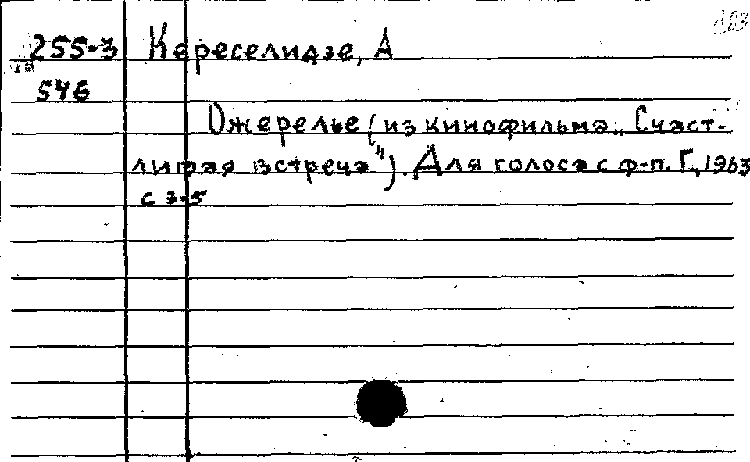 255-3 Кереселидзе, А
546
Ожерелье (из кинофильма „Счаст-
ливая встреча"). Для голоса с ф-п. Г., 1963
с 3-5